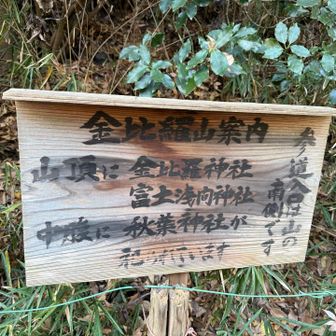 金比羅山案内
山頂に 金比羅神社
冨士浅间神社
中腹に 秋葉神社が
祀られています
参道入口は山の
南側です